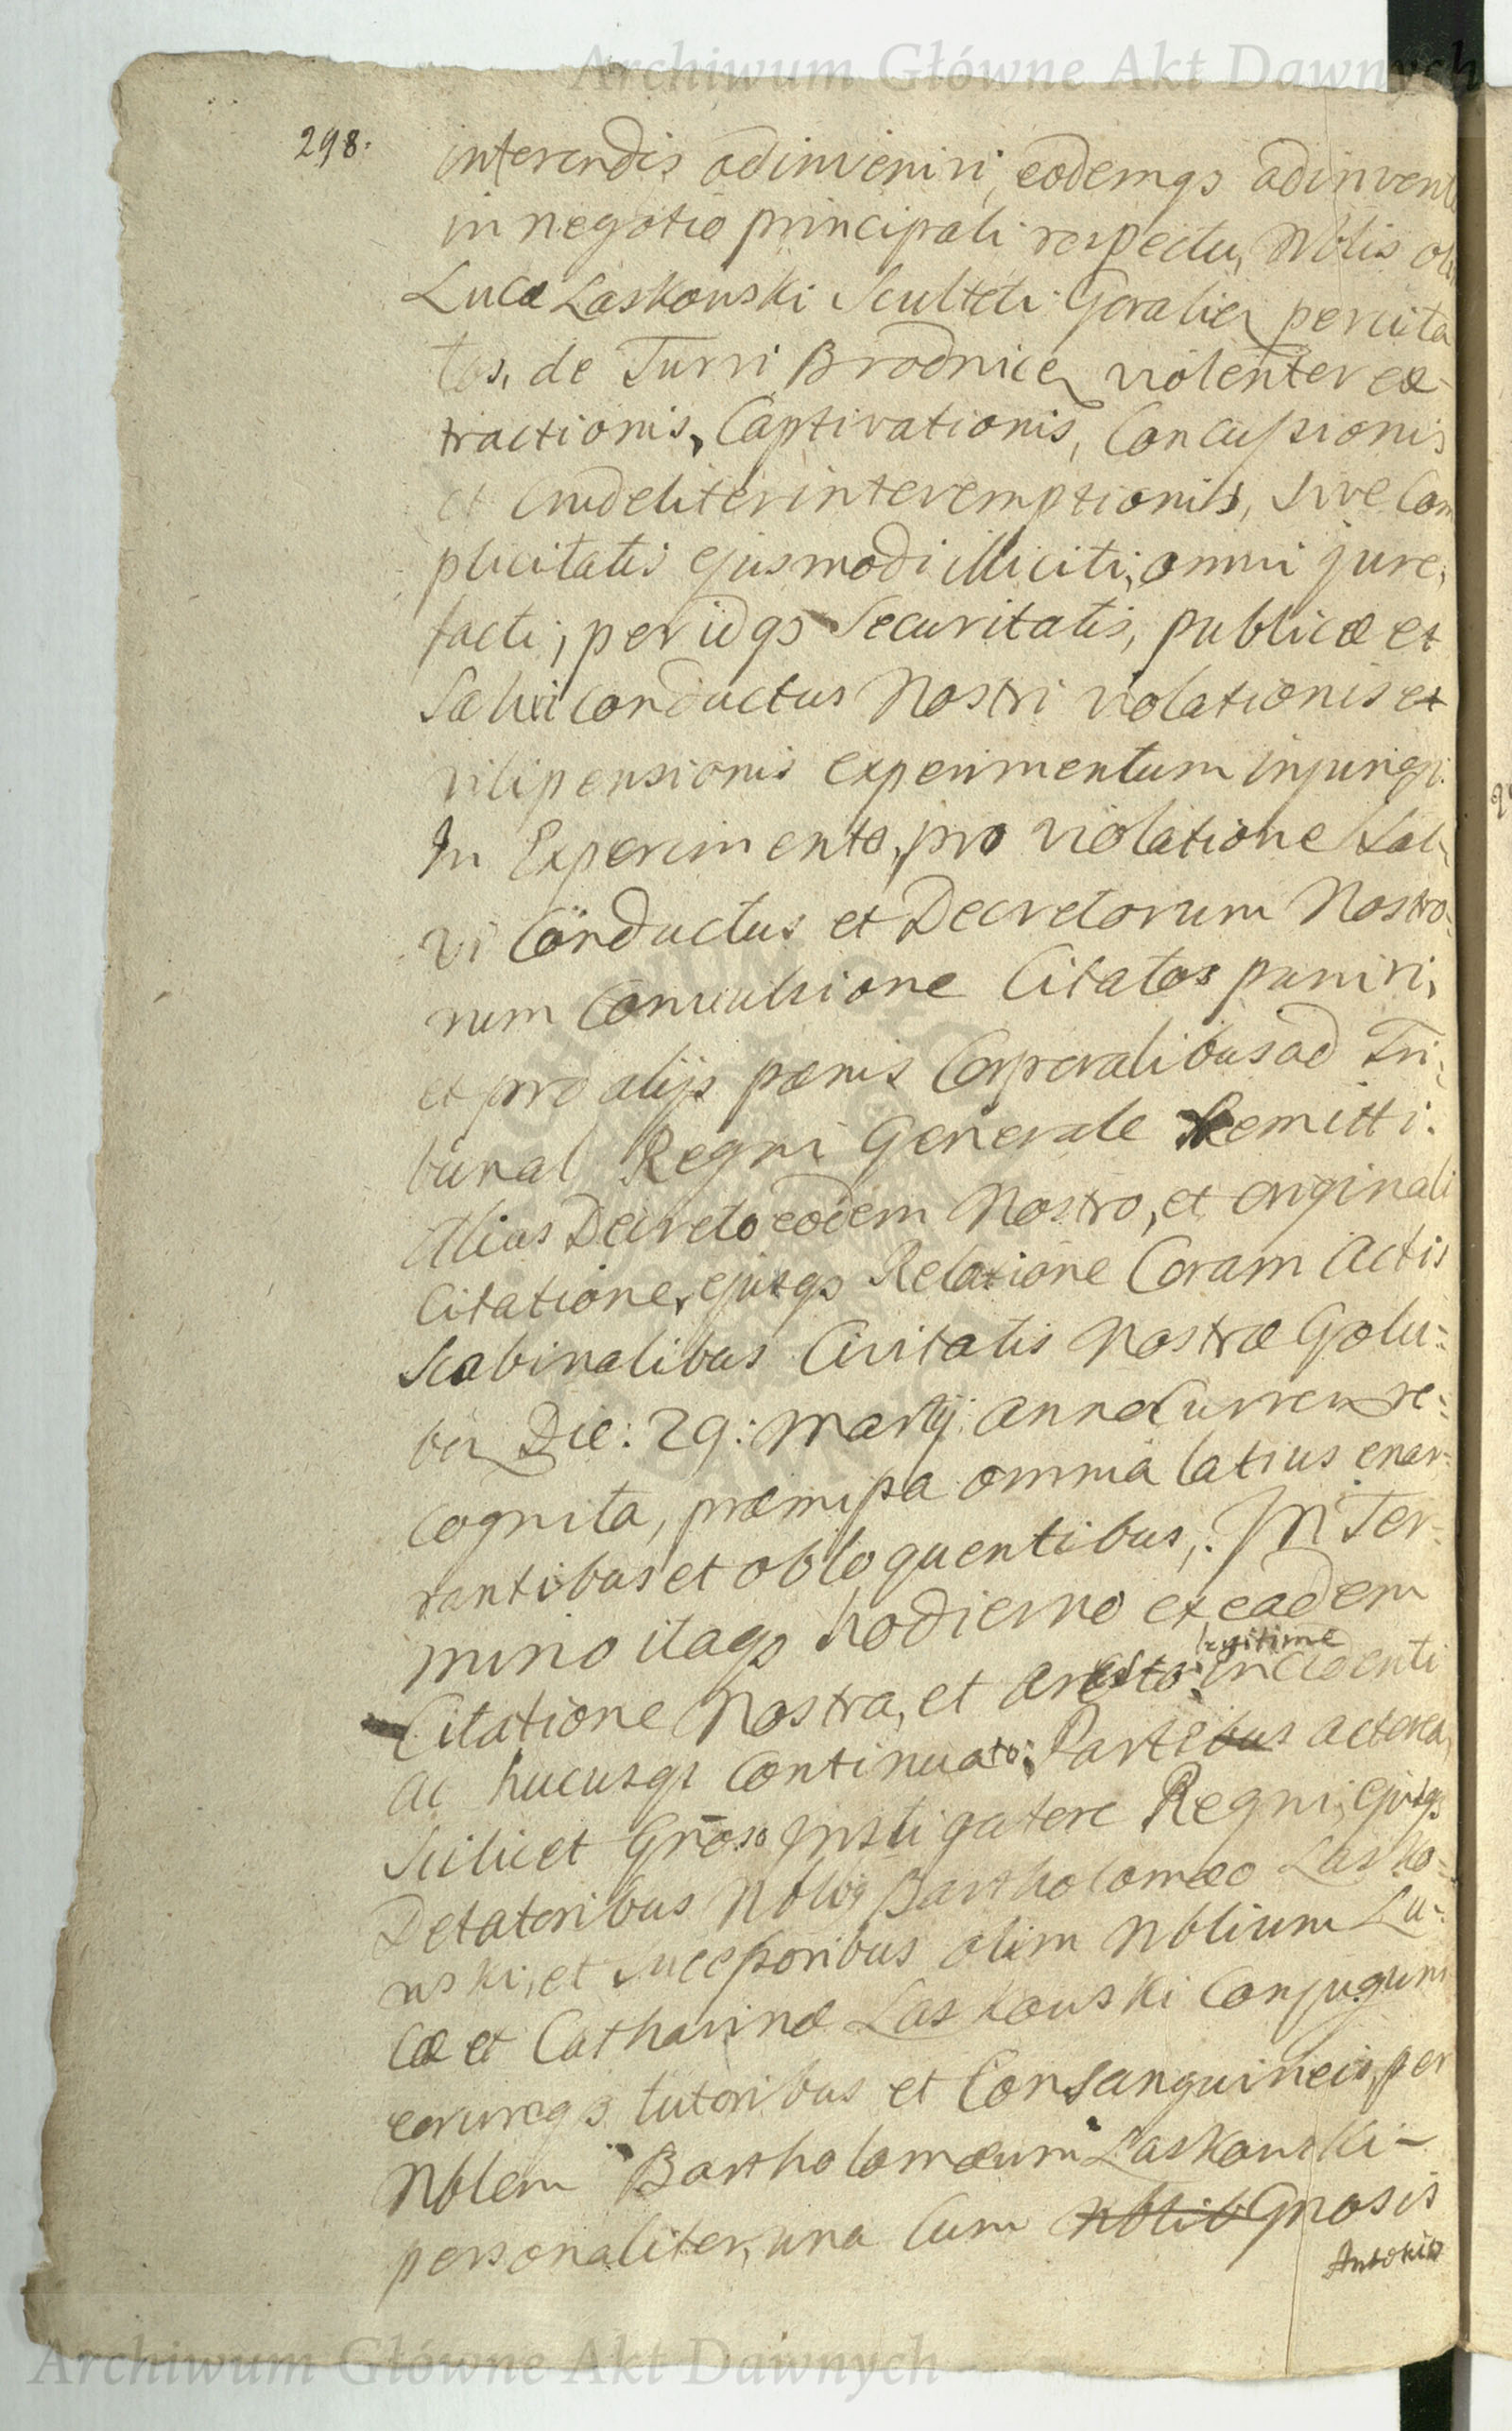 Archiwum Główne Akt Dawnych
298.
interendis adinveniri, eodemqs adinvento
in negotio principali respectu, Nblis oli
Lucæ Laskowski Sculteti Goraliæ per cita
tos, de Turri Brodnicæ violenter ex-
tractionis, Captivationis, Concussionis
et crudeliter interemptionis, sive Com
plicitatis ejusmodi illiciti, omni jure,
facti; per idqs Securitatis, publicæ et
Salvi conductus Nostri violationis et
vilipensionis experimentum injungi.
In Experimento, pro violatione Sal-
vi Conductus et Decretorum Nostro-
rum Convulsione Citatos puniri,
et pro alijs pænis Corporalibus ad Tri-
bunal Regni Generale Remitti.
Alias Decreto eodem Nostro, et originali
Citatione, ejusqs Relatione Coram Actis
Scabinalibus Civitatis Nostræ Golu-
bæ Die: 29: Martij: anno Curren re-
cognita, præmissa omnia latius enar-
rantibus et obloquentibus, In Ter-
mino itaqs hodierno ex eadem
Citatione Nostra, et Aresto legitime incidenti
ac hucusqs Continuato; Partibus actorea,
Scilicet Groso Instigatore Regni, ejusqs
Delatoribus Nbli Bartholomæo Lasko-
wski, et Successoribus olim Nblium Lu-
cæ et Catharinæ Laskowski Conjugum
eorumqs tutoribus et Consanguineis, per
Nblem Bartholomæum Laskowski-
personaliter, una Cum Nblib Gnosis
Antonio
Archiwum Główne Akt Dawnych